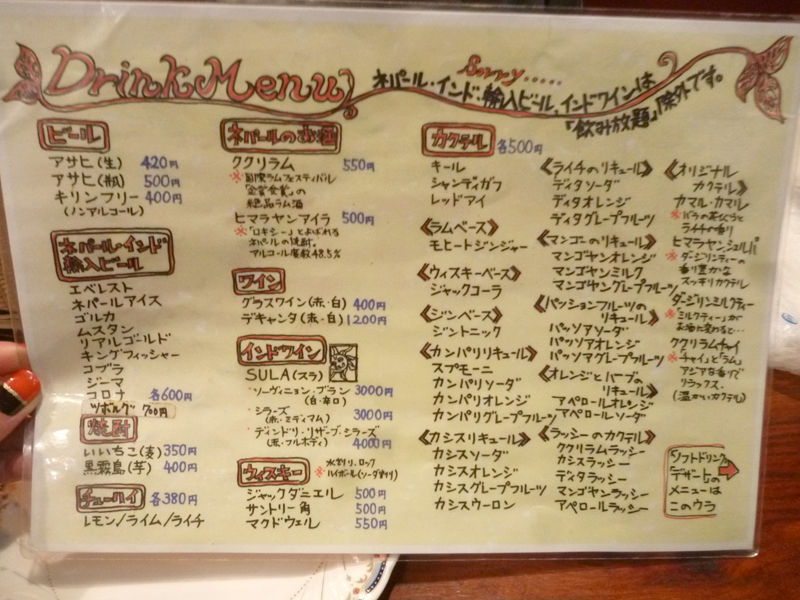 Drink Menu
Sorry.....
ネパール・インド・輸入ビール、インドワインは
「飲み放題」除外です。
ビール
アサヒ(生) 420円
アサヒ(瓶) 500円
キリンフリー 400円
(ノンアルコール)
ネパール・インド
輸入ビール
エベレスト
ネパールアイス
ゴルカ
ムスタン
リアルゴールド
キングフィッシャー
コブラ
ジーマ
コロナ 各600円
ツボルグ 700円
焼酎
いいちこ(麦) 350円
黒霧島(芋) 400円
チューハイ 各380円
レモン/ライム/ライチ
ネパールのお酒
ククリラム 550円
※国際ラムフェスティバル
「金賞受賞」の
絶品ラム酒
ヒマラヤンアイラ 500円
※「ロキシー」とよばれる
ネパールの焼酎。
アルコール度数48.5%
ワイン
グラスワイン(赤・白) 400円
デキャンタ(赤・白) 1200円
インドワイン
SULA(スラ)
・ソーヴィニョン・ブラン 3000円
(白・辛口)
・シラーズ 3000円
(赤・ミディアム)
・ディンドリ・リザーブ・シラーズ
(赤・フルボディ) 4000円
ウィスキー
※水割り、ロック
ハイボール(ソーダ割り)
ジャックダニエル 500円
サントリー角 500円
マクドウェル 550円
カクテル 各500円
キール
シャンディガフ
レッドアイ
《ラムベース》
モヒートジンジャー
《ウィスキーベース》
ジャックコーラ
《ジンベース》
ジントニック
《カンパリリキュール》
スプモーニ
カンパリソーダ
カンパリオレンジ
カンパリグレープフルーツ
《カシスリキュール》
カシスソーダ
カシスオレンジ
カシスグレープフルーツ
カシスウーロン
《ライチのリキュール》
ディタソーダ
ディタオレンジ
ディタグレープフルーツ
《マンゴーのリキュール》
マンゴヤンオレンジ
マンゴヤンミルク
マンゴヤングレープフルーツ
《パッションフルーツの
リキュール》
パッソアソーダ
パッソアオレンジ
パッソアグレープフルーツ
《オレンジとハーブの
リキュール》
アペロールオレンジ
アペロールソーダ
《ラッシーのカクテル》
ククリラムラッシー
カシスラッシー
ディタラッシー
マンゴヤンラッシー
アペロールラッシー
《オリジナル
カクテル》
カマル・カマル
※バラの花びらと
ライチの香り
ヒマラヤンジュルパ
※ダージリンティーの
香り豊かな
スッキリカクテル
ダージリンミルクティー
※「ミルクティー」が
お酒に変わると…
ククリラムチャイ
※「チャイ」と「ラム」
アジアな香りで
リラックス。
(温かいカクテル)
「ソフトドリンク」
「デザート」の
メニューは
このウラ